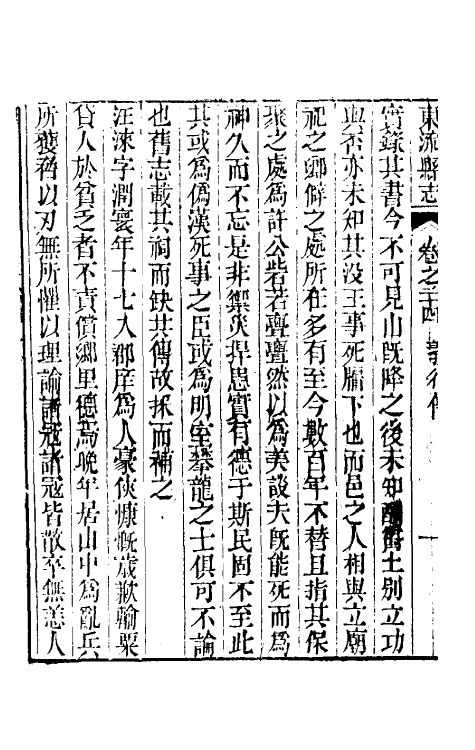 東流縣志 卷之二十四 義行傳 一
實錄其書今不可見山旣降之後未知 土別立功
與否亦未知其沒王事死牖下也而邑之人相與立廟
祀之鄉僻之處所在多有至今數百年不替且指其保
聚之處爲許公砦若亹亹然以爲美談夫旣能死而爲
神久而不忘是非禦災捍患實有德于斯民固不至此
其或爲僞漢死事之臣或爲明室攀龍之士俱可不論
也舊志載其祠而缺其傳故採而補之
汪涷字澗寰年十七入郡庠爲人豪俠慷慨歲歉輸粟
貸人於貧乏者不責償鄉里德焉晚年居山中爲亂兵
所獲脅以刃無所懼以理諭諸寇諸寇皆散卒無恙人